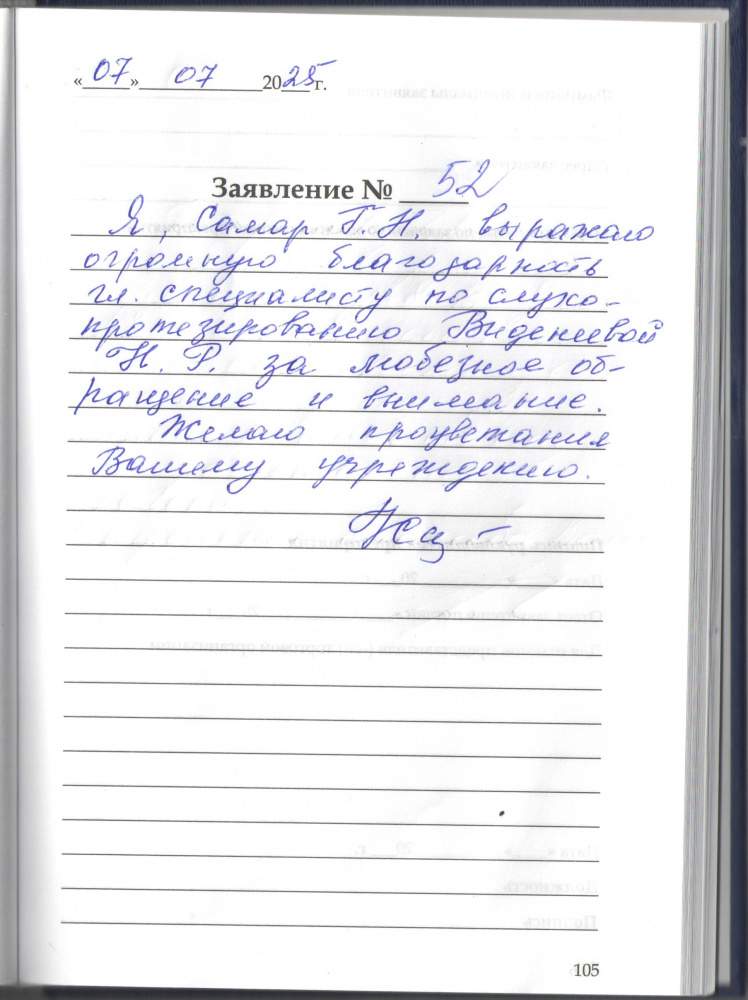 «07» 07 2025 г.
Заявление № 52
Я, Самар Г.Н. выражаю
огромную благодарность
гл. специалисту по слухо-
протезированию Виденеевой
Н. Р. за любезное об-
ращение и внимание.
Желаю процветания
Вашему учреждению.
105